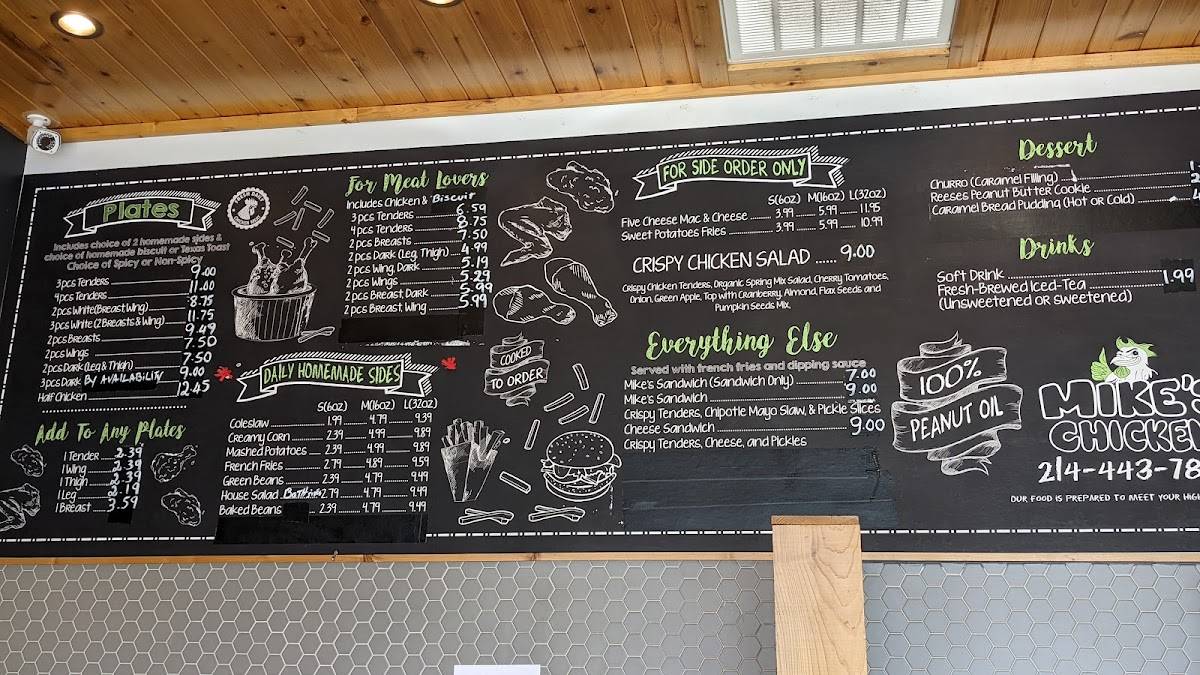 Plates
Includes choice of 2 homemade sides &
choice of homemade biscuit or Texas Toast
Choice of Spicy or Non-Spicy
3pcs Tenders 9.00
4pcs Tenders 11.00
2pcs White (Breast, Wing) 8.75
3pcs White (2 Breasts & Wing) 11.75
2pcs Breasts 9.49
2pcs Wings 7.50
2pcs Dark (Leg & Thigh) 7.50
3pcs Dark BY AVAILABILITY 9.00
Half Chicken 12.45
Add To Any Plates
1 Tender 2.39
1 Wing 2.39
1 Thigh 2.39
1 Leg 2.19
1 Breast 3.59
For Meat Lovers
Includes Chicken & Biscuit
3 pcs Tenders 6.59
4 pcs Tenders 8.75
2 pcs Breasts 7.50
2 pcs Dark (Leg, Thigh) 4.99
2 pcs Wing, Dark 5.19
2 pcs Wings 5.29
2 pcs Breast, Dark 5.99
2 pcs Breast, Wing 5.99
DAILY HOMEMADE SIDES
S(6oz) M(16oz) L(32oz)
Coleslaw 1.99 4.79 9.39
Creamy Corn 2.39 4.99 9.89
Mashed Potatoes 2.39 4.99 9.89
French Fries 2.79 4.89 9.59
Green Beans 2.39 4.79 9.49
House Salad 2.79 4.79 9.49
Baked Beans 2.39 4.79 9.49
COOKED
TO ORDER
FOR SIDE ORDER ONLY
S(6oz) M(16oz) L(32oz)
Five Cheese Mac & Cheese 3.99 5.99 11.95
Sweet Potatoes Fries 3.99 5.99 10.99
CRISPY CHICKEN SALAD ...... 9.00
Crispy Chicken Tenders, Organic Spring Mix Salad, Cherry Tomatoes,
Onion, Green Apple, Top with Cranberry, Almond, Flax Seeds and
Pumpkin Seeds Mix.
Everything Else
Served with french fries and dipping sauce
Mike's Sandwich (Sandwich Only) 7.00
Mike's Sandwich 9.00
Crispy Tenders, Chipotle Mayo Slaw, & Pickle Slices
Cheese Sandwich 9.00
Crispy Tenders, Cheese, and Pickles
Dessert
Churro (Caramel Filling)
Reeses Peanut Butter Cookie
Caramel Bread Pudding (Hot or Cold)
Drinks
Soft Drink
Fresh-Brewed Iced-Tea 1.99
(Unsweetened or sweetened)
100%
PEANUT OIL
MIKE'S
CHICKEN
214-443-78
OUR FOOD IS PREPARED TO MEET YOUR HIGH